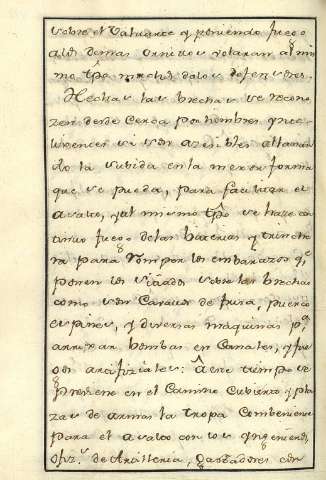 sobre el Valuarte y poniendo fuego
a los demas Ornillos volaran al mi
mo tpo muchos de los defensores.
Hechas las brechas se recono
zen desde Cerca por hombres
si son azesibles allanan
do la subida en la mexor forma
que se pueda, para facilitar el
avalco, y al mismo tpo se haze con
tinuo fuego de las baterias y trinche
ra para Romper los embarazos q.e
ponen los sobre las brechas
como son Cavallos de frisa, puerco
espines, y diversas maquinas p.a
arroxar bombas en Canales, y fue
gos artifiziales: A este tiempo se
previene en el Camino Cubierto y pla
zas de armas la tropa Combeniente
para el avalco con los Yngenieros,
Ofiz.s de Artilleria, Gastadores con